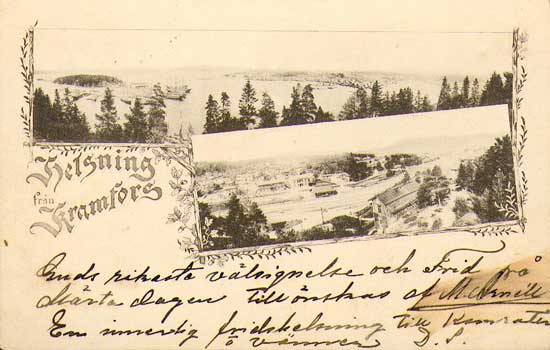 Helsning
från
Kramfors
Guds rikaste välsignelse och Frid på
Märta dagen tillönskas af M.
En innerlig fridshelsning till Kamrater
o vänner D. S.